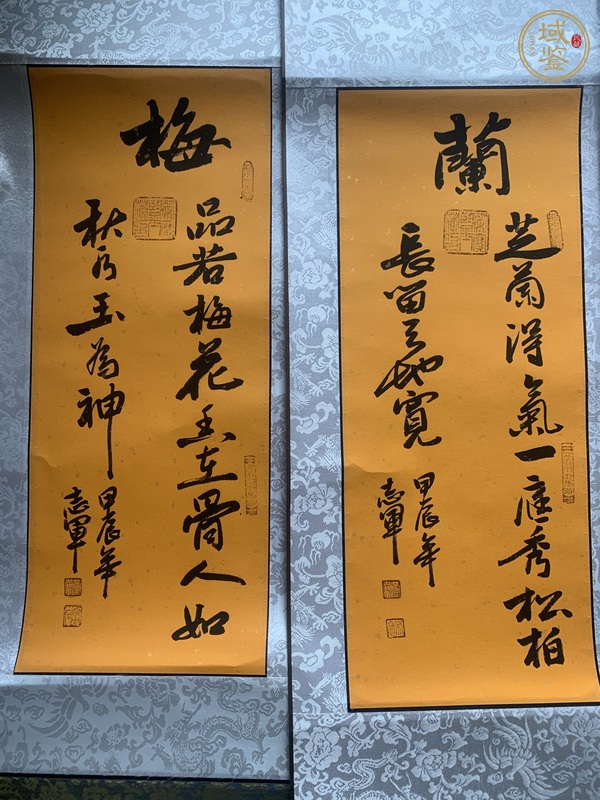 蘭
芝蘭得氣一庭秀松柏
長留天地寬
甲辰年
志軍
梅
品若梅花香在骨人如
秋水玉為神
甲辰年
志軍
域鑒